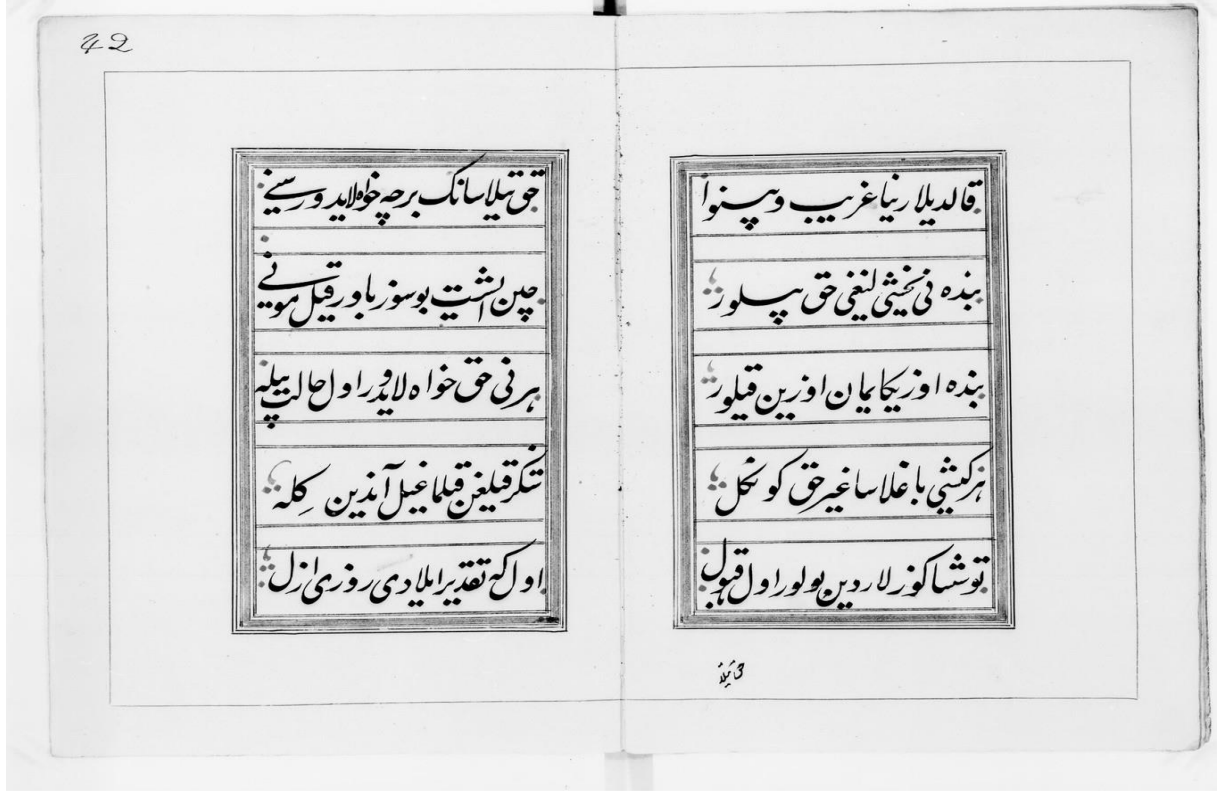 42
قالدیلار نیا غریب و بینوا
بنده نی یخشی لیغی حق بیلور
بنده اوزیکا یمان اوزین قیلور
هر کیشی باغلاسا غیر حق کونکل
توشسا کوزلاردین بولور اول
حق تیلاسانک برچه خواه لایدور سینی
چین ایشیت بوسوز باور قیل مونی
هرنی حق خواه لایدور اول حالت بیله
شکر قیلغن قیلماغیل آندین کله
اول که تقدیر ایلادی روزی ازل